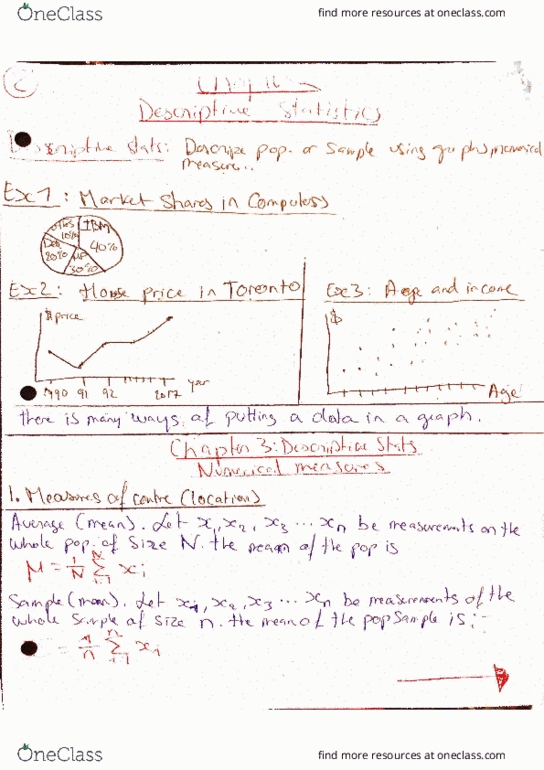 OneClass
find more resources at oneclass.com
C
Descriptive Statistics
Descriptive stats: Describe pop. or Sample using graphs/numerical
measure..
Ex1: Market Shares in Computers
others
10%
IBM
40%
Dell
20%
HP
30%
Ex2: House price in Toronto
$price
1990 91 92 2017 year
Ex3: Age and income
$
Age
there is many ways of putting a data in a graph.
Chapter 3: Descriptive Stats
Numerical measures
1. Measures of centre (location)
Average (mean). Let x1, x2, x3 ... xn be measurements on the
whole pop. of Size N. the mean of the pop is
μ = 1/N Σ i=1 N xi
Sample (mean). Let x1, x2, x3 ... xn be measurements of the
whole Sample of size n. the mean of the pop Sample is:
= 1/n Σ i=1 n xi
OneClass
find more resources at oneclass.com